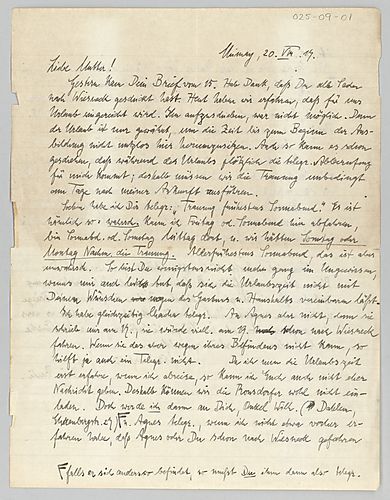 025-09-01
Murnau, 20. VII. 17.
Liebe Mutter!
Gestern kam Dein Brief vom 15. Hab Dank, daß Du alle Sachen
nach Wiesneck geschickt hast. Heut haben wir erfahren, daß für uns
Urlaub eingereicht wird. Ihn aufzuschieben, war nicht möglich. Denn
der Urlaub ist nur gewährt, um die Zeit bis zum Beginn der Aus-
bildung nicht nutzlos hier herumzusitzen. Auch so kann es schon
geschehen, daß während des Urlaubs plötzlich die telegr. Abberufung
für mich kommt; deshalb müssen wir die Trauung unbedingt
am Tage nach meiner Ankunft ausführen.
Soeben habe ich Dir telegr.: "Trauung frühestens Sonnabend." Es ist
nämlich so: wahrsch. kann ich Freitag od. Sonnabend hier abfahren,
bin Sonnabd. od. Sonntag Mittag dort, u. wir hätten Sonntag oder
Montag Nachm. die Trauung. Allerfrühestens Sonnabend, das ist aber
unwahrsch. So bist Du wenigstens nicht mehr ganz im Ungewissen,
wenn mir auch leid tut, daß sich die Urlaubszeit nicht mit
Deinen Wünschen wegen des Gartens u. Haushalts vereinbaren läßt.
Ich habe gleichzeitig telegr. An Agnes aber nicht, denn sie
schrieb mir am 17., sie würde viell. am 19. schon nach Wiesneck
fahren. Wenn sie das aber wegen ihres Befindens nicht kann, so
hilft ja auch ein Telegr. nicht. Da ich nun die Urlaubszeit
erst erfahre, wenn ich abreise, so kann ich Euch auch nicht eher
Nachricht geben. Deshalb können wir die Ronsdorfer wohl nicht ein-
laden. Doch werde ich dann an Dich, Onkel Will. (Dahlem,
27) u. Agnes telegr., wenn ich nicht etwa vorher er-
fahren habe, daß Agnes oder Du schon nach Wiesneck gefahren
falls er sich anderswo befindet, so mußt Du ihm dann also telegr.